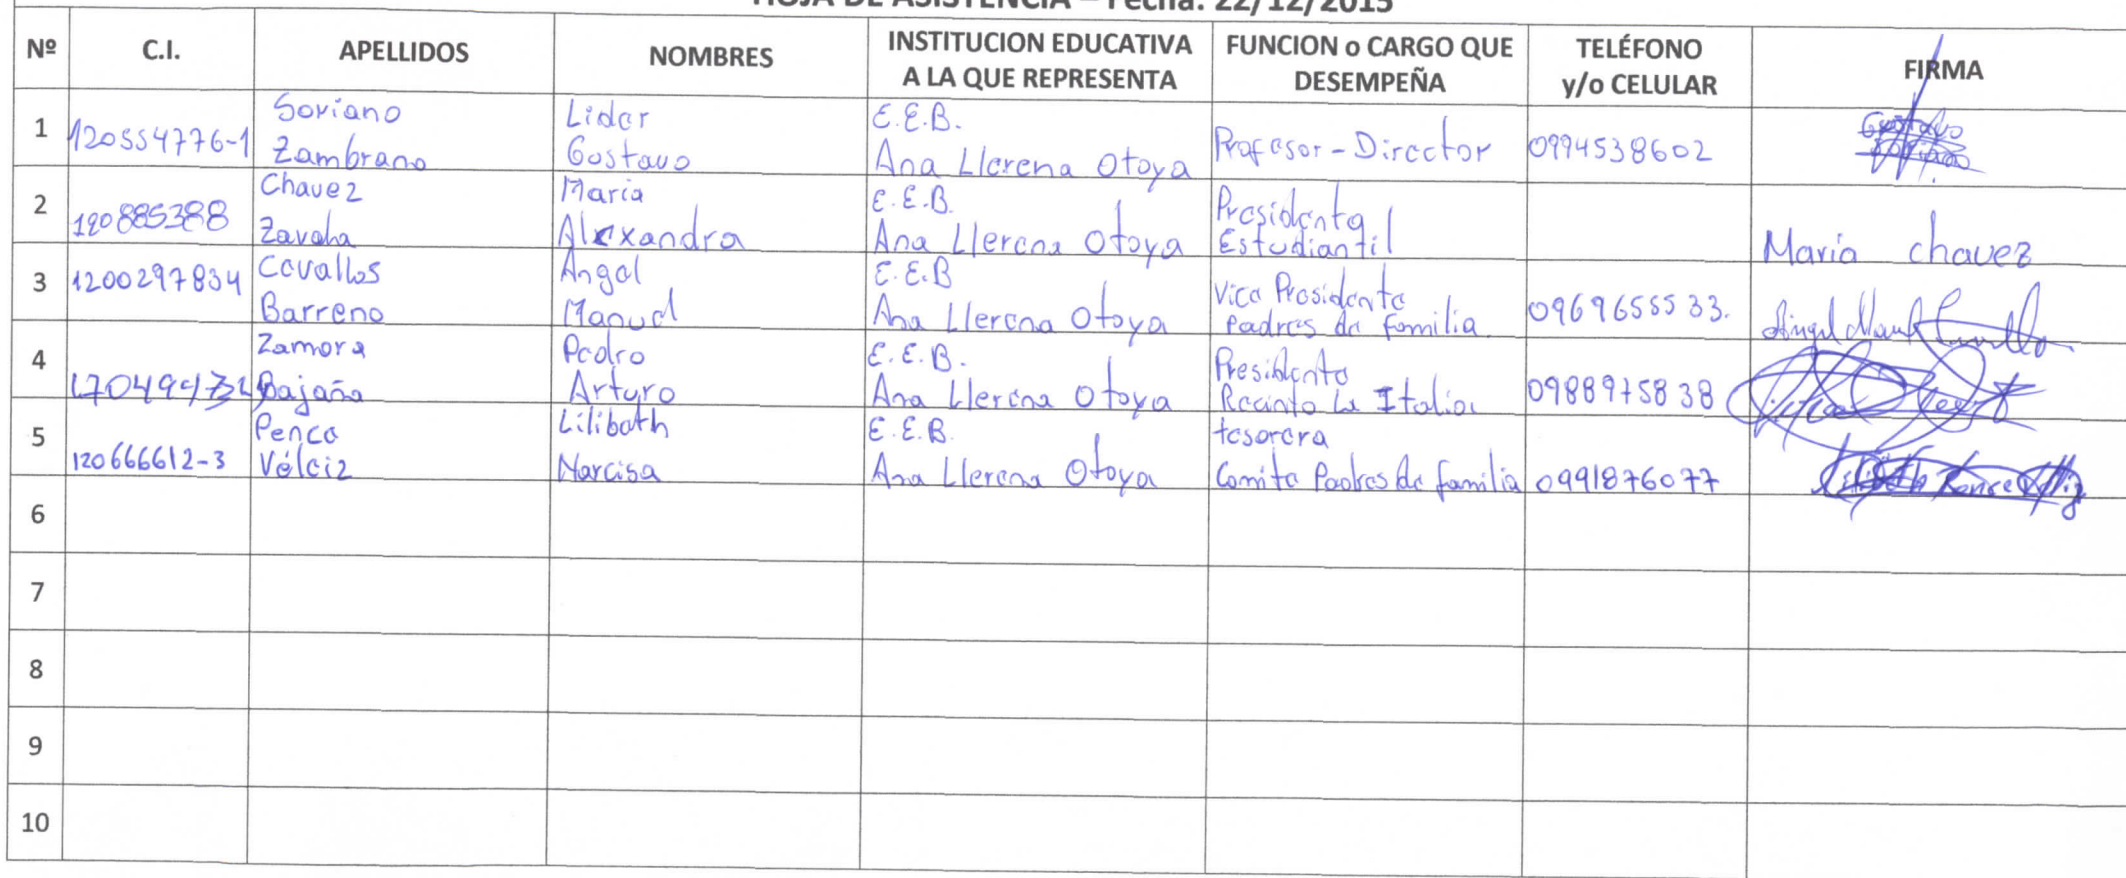 HOJA DE ASISTENCIA – Fecha: 22/12/2015
Nº C.I. APELLIDOS NOMBRES INSTITUCION EDUCATIVA A LA QUE REPRESENTA FUNCION o CARGO QUE DESEMPEÑA TELÉFONO y/o CELULAR FIRMA
1 120554776-1 Soriano Zambrano Lider Gustavo E.E.B. Ana Llerena Otoya Profesor - Director 0994538602 Gustavo Soriano
2 120885388 Chavez Zavala Maria Alexandra E.E.B. Ana Llerena Otoya Presidenta Estudiantil Maria chavez
3 1200297834 Cevallos Barreno Angel Manuel E.E.B Ana Llerena Otoya Vice Presidente Padres de familia. 0969655533. Angel Manuel
4 Zamora Bajaña Pedro Arturo E.E.B. Ana Llerena Otoya Presidente Recinto La Italia 0988975838
5 120666612-3 Penca Vélciz Lilibeth Narcisa E.E.B. Ana Llerena Otoya tesorera Comite Padres de familia 0991876077
6
7
8
9
10